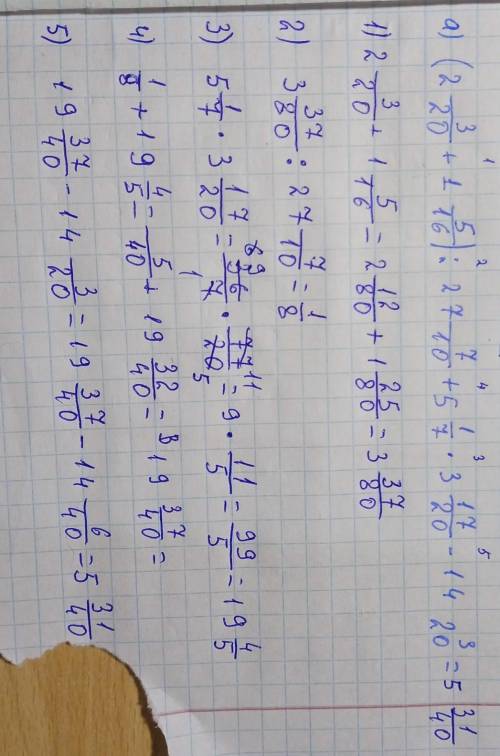 а) (2 3/20 + 1 5/16) : 27 7/10 + 5 1/7 · 3 17/20 - 14 3/20 = 5 31/40
1) 2 3/20 + 1 5/16 = 2 12/80 + 1 25/80 = 3 37/80
2) 3 37/80 : 27 7/10 = 1/8
3) 5 1/7 · 3 17/20 = 36/7 · 77/20 = 9 · 11/5 = 99/5 = 19 4/5
4) 1/8 + 19 4/5 = 5/40 + 19 32/40 = 19 37/40 =
5) 19 37/40 - 14 3/20 = 19 37/40 - 14 6/40 = 5 31/40